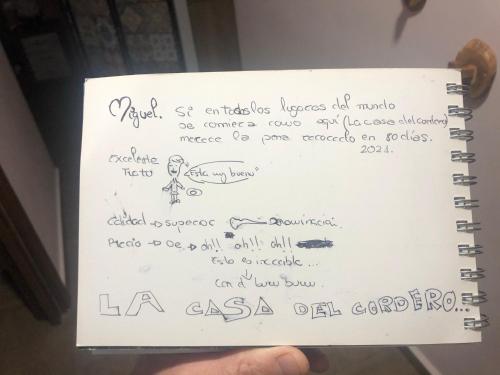 Miguel. Si en todos los lugares del mundo
se comiera como aquí (La casa del cordero)
merece la pena recorrerlo en 80 días.
2021.
Excelente
Trato
"Está muy bueno"
Calidad → Superior Denominación.
Precio → De → oh!! oh!! oh!!
Esto es increíble...
LA CASA DEL CORDERO...